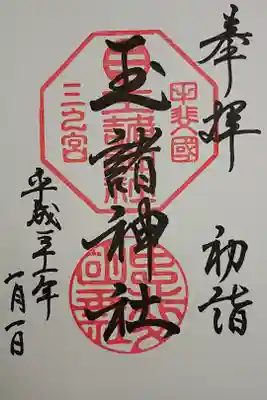 奉拝
初詣
甲斐國
玉諸神社
三之宮
平成三十一年
一月一日